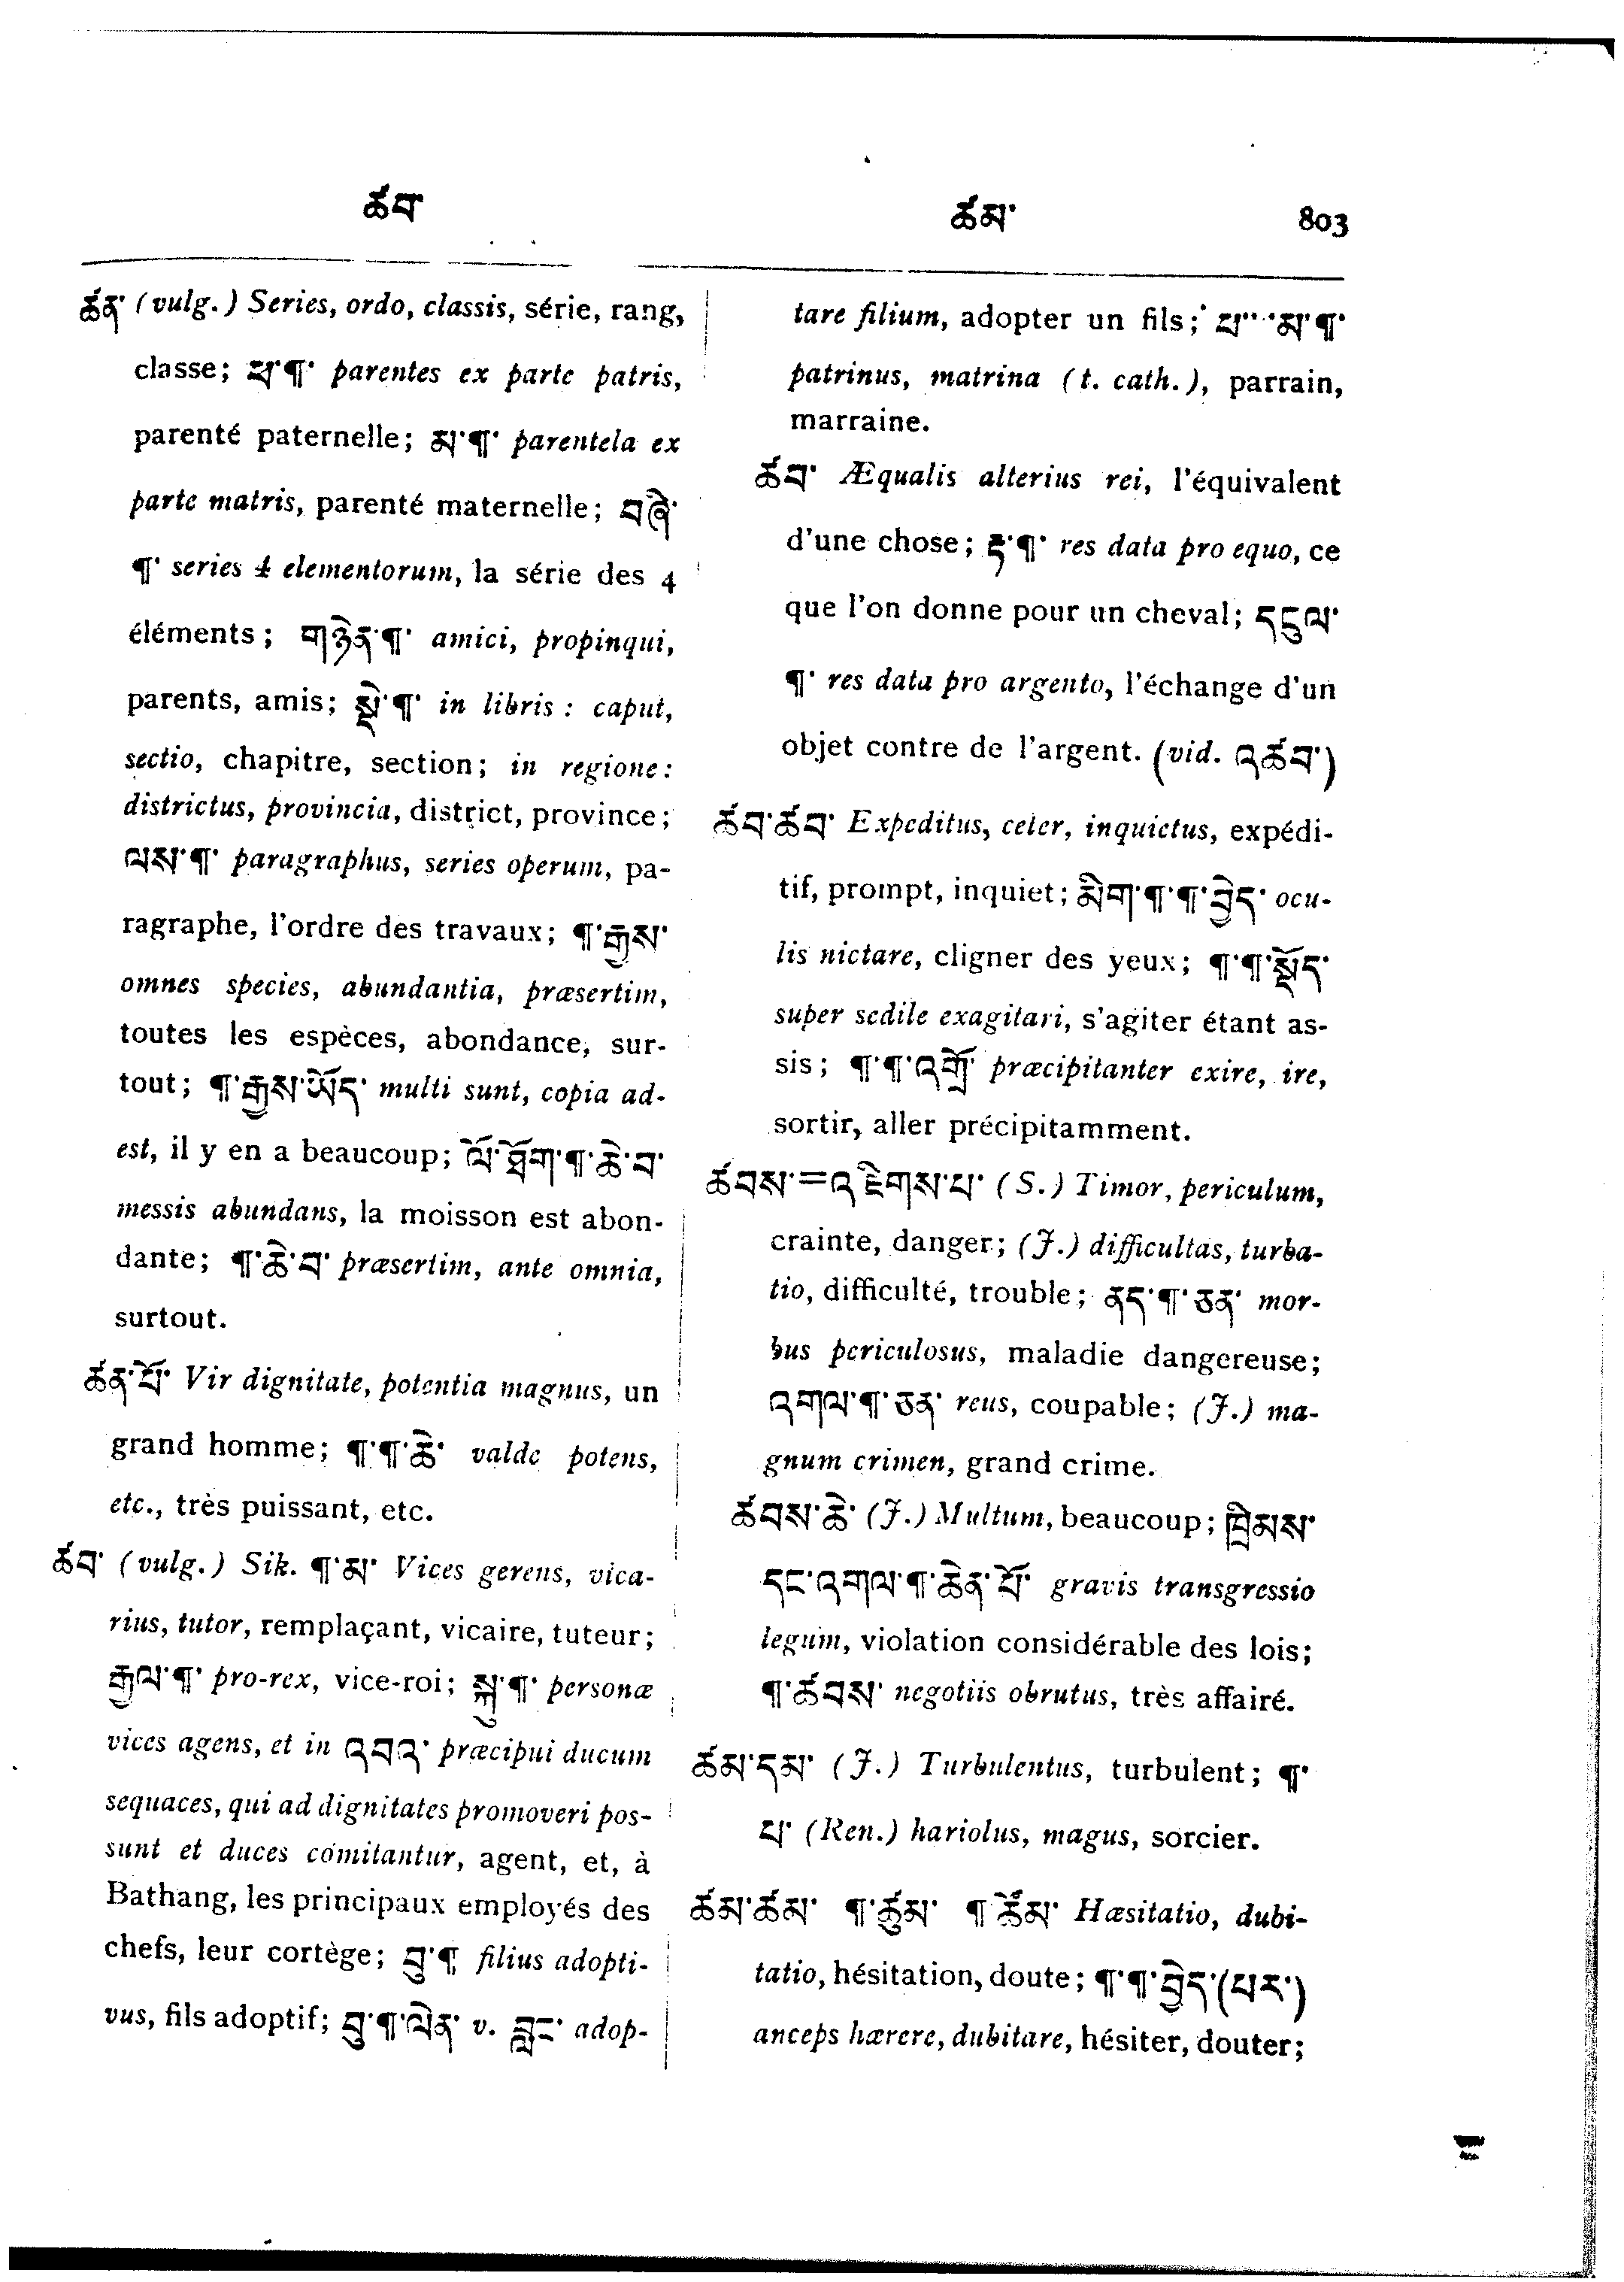 ཚབ་
ཚམ་ 803
ཚན་ (vulg.) Series, ordo, classis, série, rang,
classe; ཕ་¶་ parentes ex parte patris,
parenté paternelle; མ་¶་ parentela ex
parte matris, parenté maternelle; བཞི་
¶་ series 4 elementorum, la série des 4
éléments; གཉེན་¶་ amici, propinqui,
parents, amis; སྡེ་¶་ in libris : caput,
sectio, chapitre, section; in regione:
districtus, provincia, district, province;
ལས་¶་ paragraphus, series operum, pa-
ragraphe, l'ordre des travaux; ¶་རྒྱས་
omnes species, abundantia, præsertim,
toutes les espèces, abondance, sur-
tout; ¶་རྒྱས་ཡོད་ multi sunt, copia ad-
est, il y en a beaucoup; ལོ་ཐོག་¶་ཆེ་བ་
messis abundans, la moisson est abon-
dante; ¶་ཆེ་བ་ præsertim, ante omnia,
surtout.
ཚན་པོ་ Vir dignitate, potentia magnus, un
grand homme; ¶་¶་ཆེ་ valde potens,
etc., très puissant, etc.
ཚབ་ (vulg.) Sik. ¶་མ་ Vices gerens, vica-
rius, tutor, remplaçant, vicaire, tuteur;
རྒྱལ་¶་ pro-rex, vice-roi; སྐུ་¶་ personæ
vices agens, et in འབའ་ præcipui ducum
sequaces, qui ad dignitates promoveri pos-
sunt et duces comitantur, agent, et, à
Bathang, les principaux employés des
chefs, leur cortège; བུ་¶ filius adopti-
vus, fils adoptif; བུ་¶་ལེན་ v. བླང་ adop-
tare filium, adopter un fils; པ་...་མ་¶་
patrinus, matrina (t. cath.), parrain,
marraine.
ཚབ་ Æqualis alterius rei, l'équivalent
d'une chose; རྟ་¶་ res data pro equo, ce
que l'on donne pour un cheval; དངུལ་
¶་ res data pro argento, l'échange d'un
objet contre de l'argent. (vid. འཚབ་)
ཚབ་ཚབ་ Expeditus, celer, inquietus, expédi-
tif, prompt, inquiet; མིག་¶་¶་བྱེད་ ocu-
lis nictare, cligner des yeux; ¶་¶་སྡོད་
super sedile exagitari, s'agiter étant as-
sis; ¶་¶་འགྲོ་ præcipitanter exire, ire,
sortir, aller précipitamment.
ཚབས་=འཇིགས་པ་ (S.) Timor, periculum,
crainte, danger; (J.) difficultas, turba-
tio, difficulté, trouble; ནད་¶་ཅན་ mor-
bus periculosus, maladie dangereuse;
འགལ་¶་ཅན་ reus, coupable; (J.) ma-
gnum crimen, grand crime.
ཚབས་ཆེ་ (J.) Multum, beaucoup; ཁྲིམས་
དང་འགལ་¶་ཆེན་པོ་ gravis transgressio
legum, violation considérable des lois;
¶་ཚབས་ negotiis obrutus, très affairé.
ཚམ་དམ་ (J.) Turbulentus, turbulent; ¶་
པ་ (Ren.) hariolus, magus, sorcier.
ཚམ་ཚམ་ ¶་ཚུམ་ ¶་ཚོམ་ Hæsitatio, dubi-
tatio, hésitation, doute; ¶་¶་བྱེད་(པར་)
anceps hærere, dubitare, hésiter, douter;